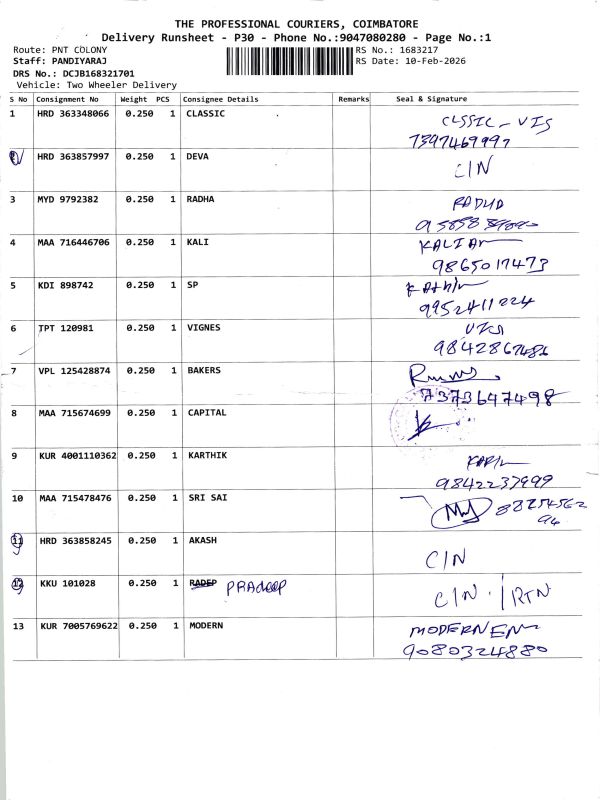 THE PROFESSIONAL COURIERS, COIMBATORE
Delivery Runsheet - P30 - Phone No.:9047080280 - Page No.:1
Route: PNT COLONY RS No.: 1683217
Staff: PANDIYARAJ RS Date: 10-Feb-2026
DRS No.: DCJB168321701
Vehicle: Two Wheeler Delivery
S No Consignment No Weight PCS Consignee Details Remarks Seal & Signature
1 HRD 363348066 0.250 1 CLASSIC CLSSIC - VIS
7397469997
2 HRD 363857997 0.250 1 DEVA C/N
3 MYD 9792382 0.250 1 RADHA
4 MAA 716446706 0.250 1 KALI
9865017473
5 KDI 898742 0.250 1 SP
9952411224
6 TPT 120981 0.250 1 VIGNES
7 VPL 125428874 0.250 1 BAKERS
7373647498
8 MAA 715674699 0.250 1 CAPITAL
9 KUR 4001110362 0.250 1 KARTHIK
9842237999
10 MAA 715478476 0.250 1 SRI SAI 88254562
94
11 HRD 363858245 0.250 1 AKASH C/N
12 KKU 101028 0.250 1 RADEP PRADEEP C/N / RTN
13 KUR 7005769622 0.250 1 MODERN MODERN EN
9080324880